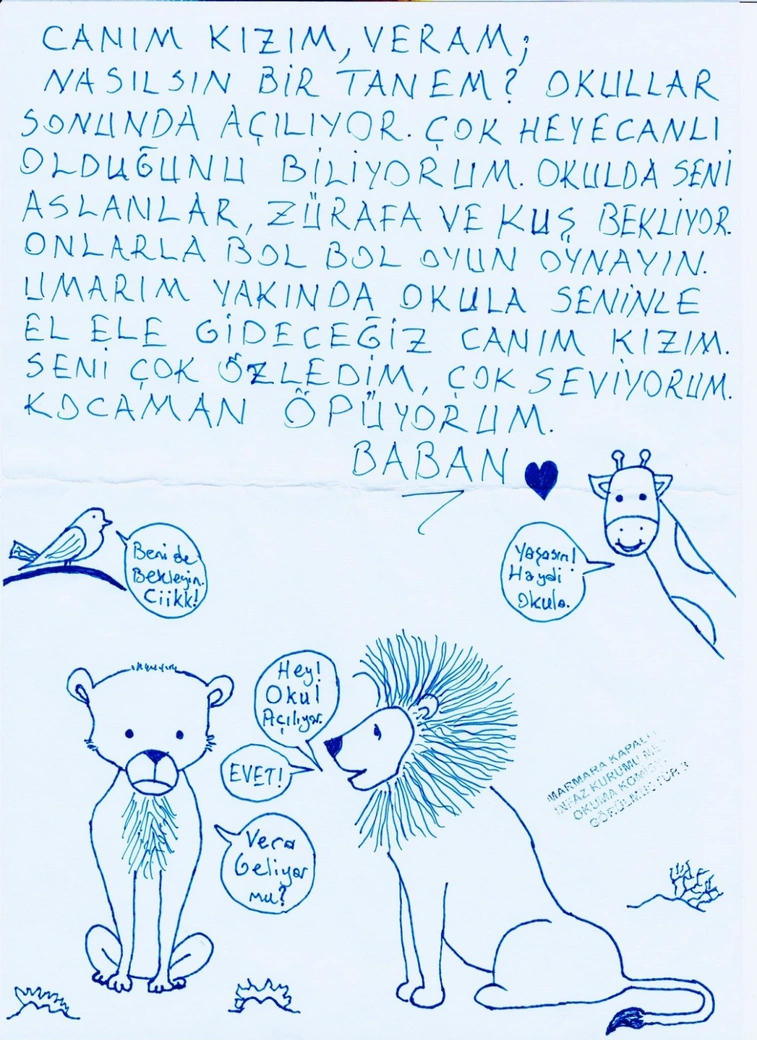 CANIM KIZIM, VERAM;
NASILSIN BİR TANEM? OKULLAR
SONUNDA AÇILIYOR. ÇOK HEYECANLI
OLDUĞUNU BİLİYORUM. OKULDA SENİ
ASLANLAR, ZÜRAFA VE KUŞ BEKLİYOR.
ONLARLA BOL BOL OYUN OYNAYIN.
UMARIM YAKINDA OKULA SENİNLE
EL ELE GİDECEĞİZ CANIM KIZIM.
SENİ ÇOK ÖZLEDİM, ÇOK SEVİYORUM.
KOCAMAN ÖPÜYORUM.
BABAN
Beni de
Bekleyin.
Ciikk!
Yaşasın!
Haydi
Okula.
Hey!
Okul
Açılıyor.
EVET!
Vera
Geliyor
mu?
MARMARA KAPALI
İNFAZ KURUMU
OKUMA